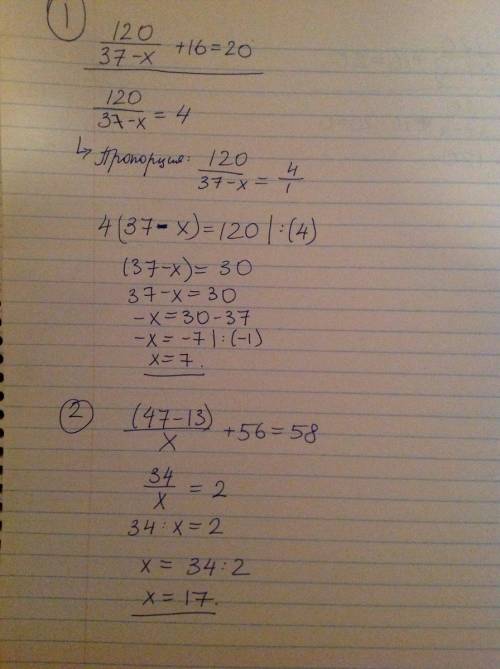 1
120/37-x +16=20
120/37-x = 4
↳ Пропорция: 120/37-x = 4/1
4(37-x)=120 |:(4)
(37-x)= 30
37-x=30
-x=30-37
-x= -7 |:(-1)
x=7.
2
(47-13)/x +56=58
34/x = 2
34:x=2
x= 34:2
x= 17.